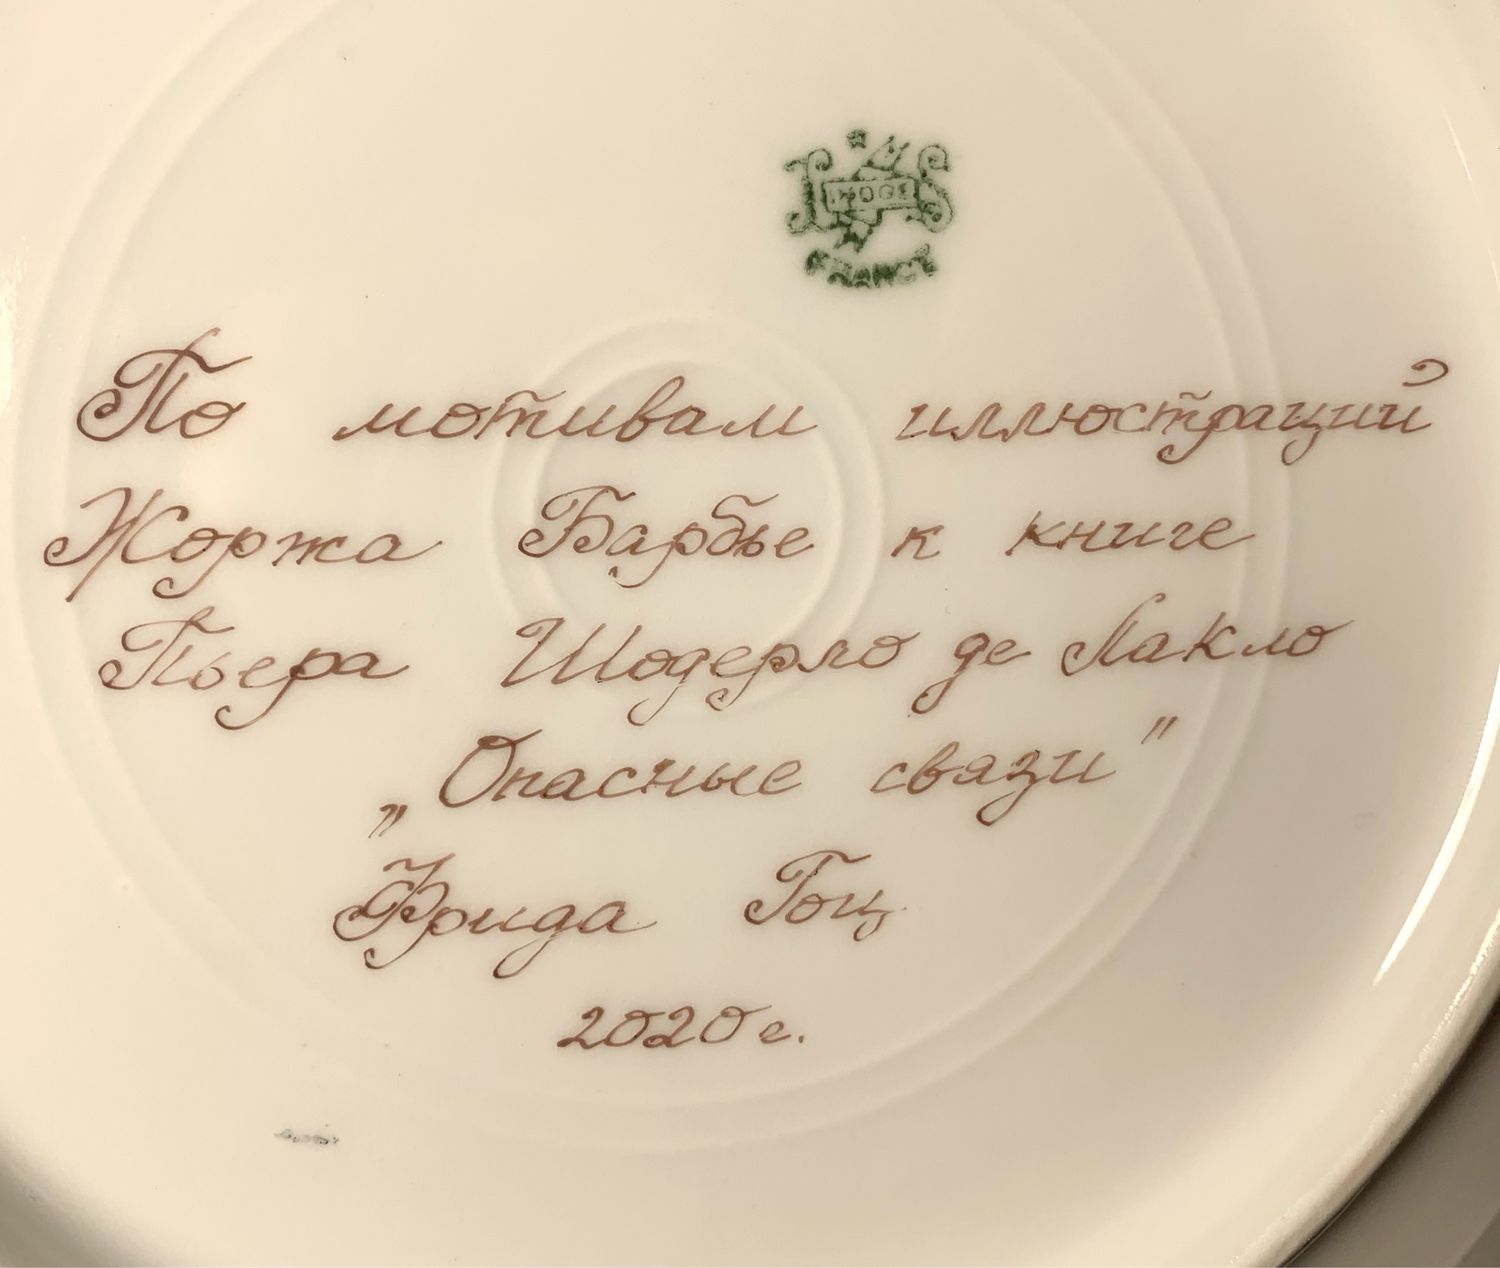 LIMOGES
FRANCE
По мотивам иллюстраций
Жоржа Барбье к книге
Пьера Шодерло де Лакло
„Опасные связи"
Фрида Гоц
2020 г.